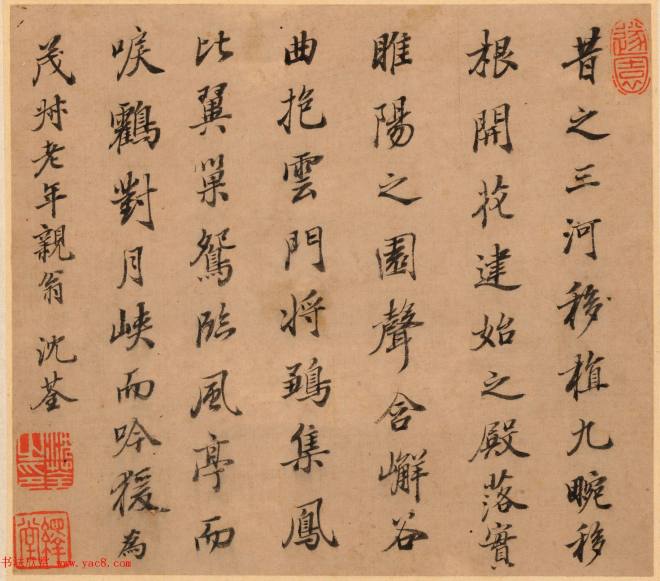 昔之三河移植九畹移
根開花建始之殿落實
睢陽之園聲含嶰谷
曲抱雲門將鶵集鳳
比翼巢鴛臨風亭而
唳鶴對月峽而吟猨為
茂州老年親翁 沈荃
遂園
沈荃之印
繹堂
书法欣赏 www.yac8.com